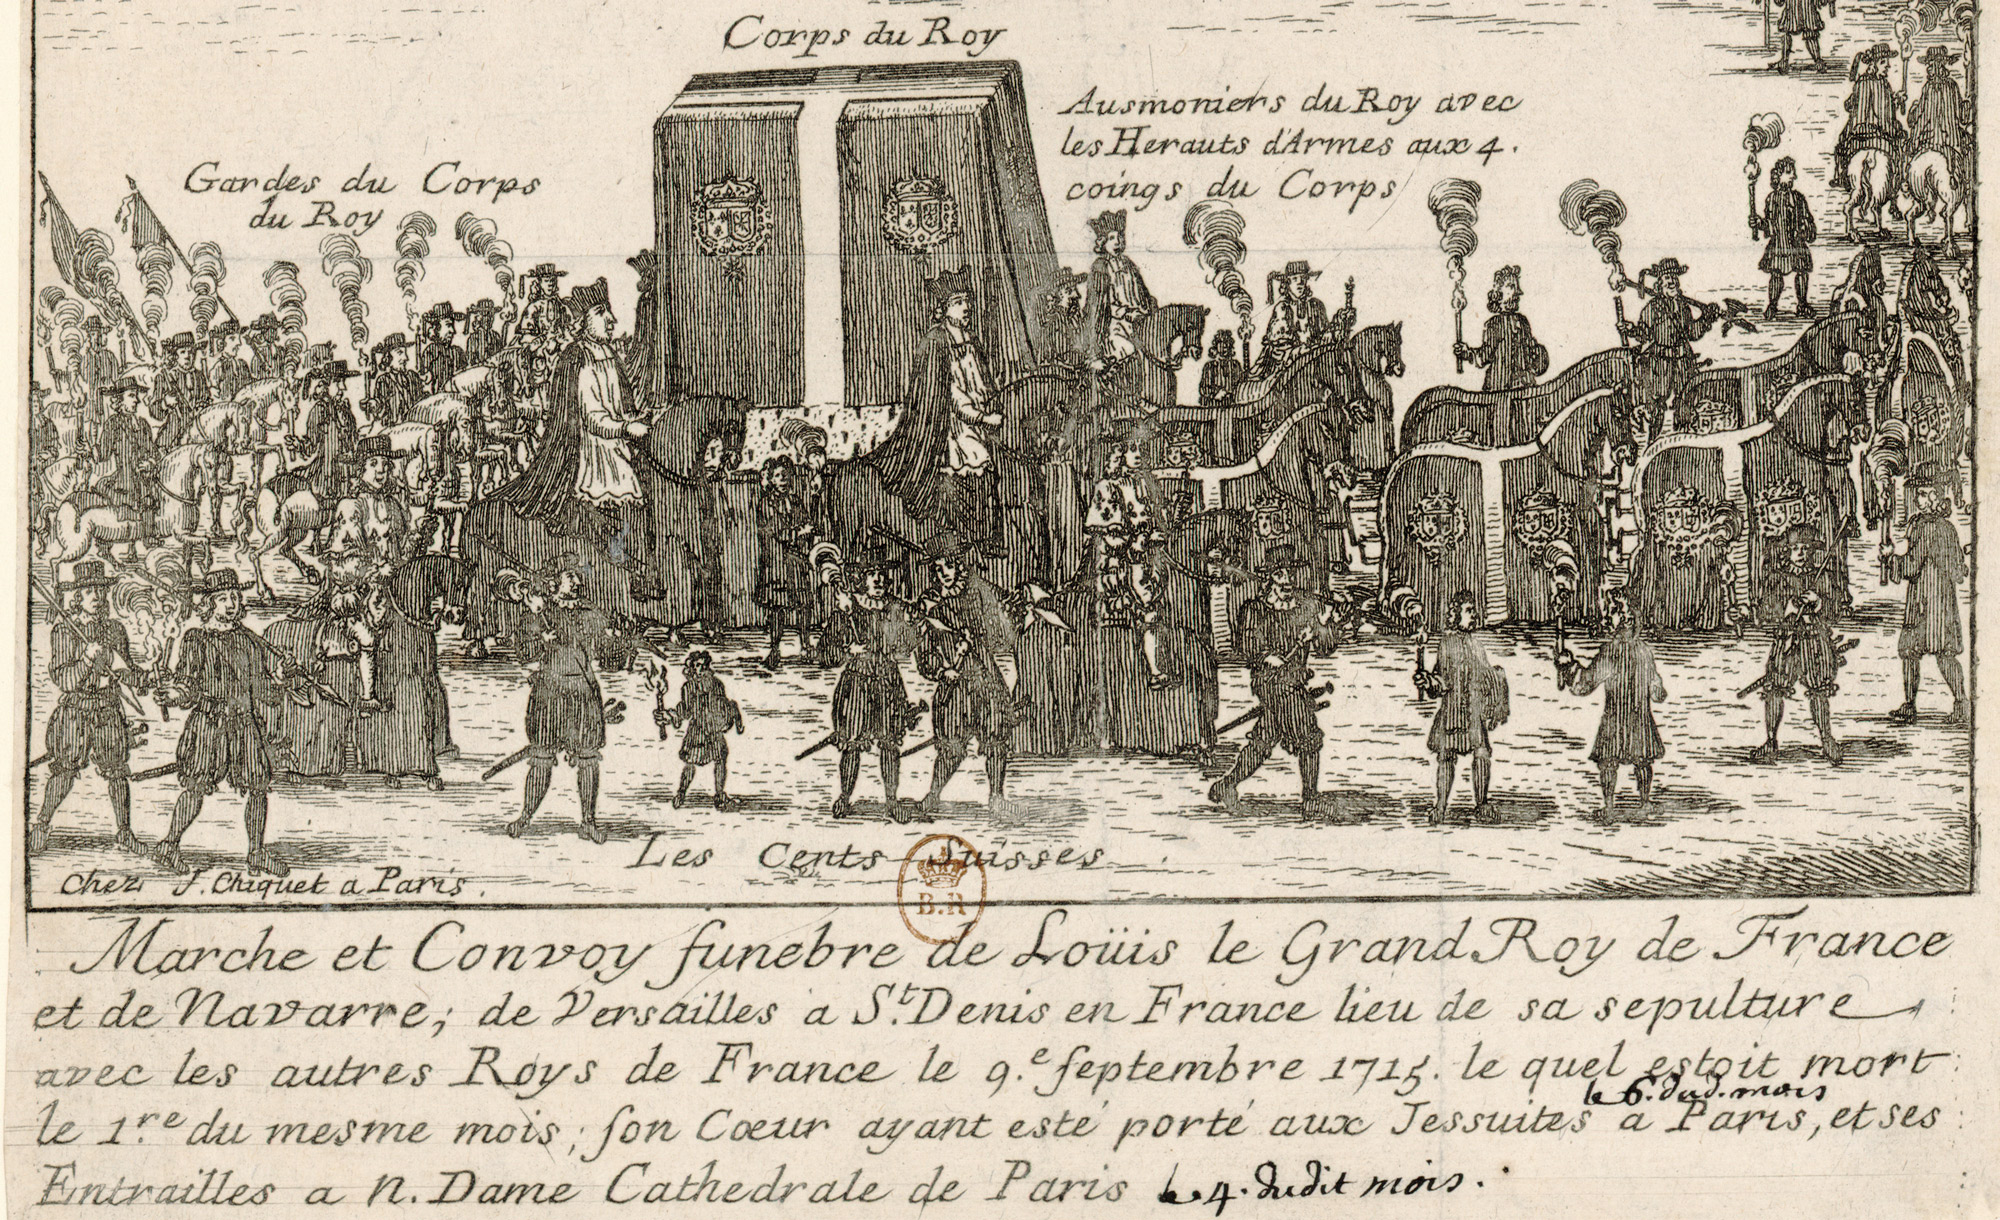 Corps du Roy
Ausmoniers du Roy avec
les Herauts d'Armes aux 4.
coings du Corps
Gardes du Corps
du Roy
Les Cents Suisses
Chez J. Chiquet a Paris.
B.R
Marche et Convoy funebre de Loüis le Grand Roy de France
et de Navarre; de Versailles a St. Denis en France lieu de sa sepulture
avec les autres Roys de France le 9.e septembre 1715. le quel estoit mort
le 6. dud. mois
le 1.re du mesme mois; son Cœur ayant esté porté aux Jessuites a Paris, et ses
Entrailles a N. Dame Cathedrale de Paris le 4. dudit mois.